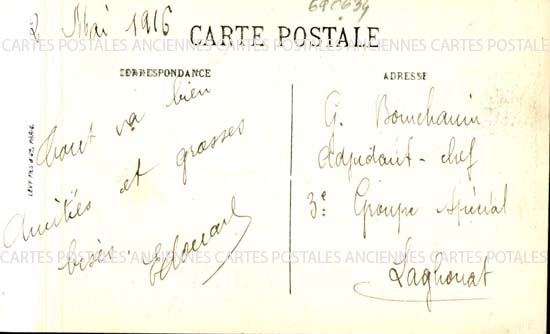 69C634
2 Mai 1916
CARTE POSTALE
CARTES POSTALES ANCIENNES CARTES POSTALES ANCIENNES CARTES POSTALES
CORRESPONDANCE
Tout va bien
Amitiés et grosses
bises. Edouard
ADRESSE
G.
Adjudant-chef
3e Groupe Spécial
Laghouat
LEVY FILS & Cie, PARIS
CARTES POSTALES ANCIENNES CARTES POSTALES ANCIENNES CARTES POSTALES